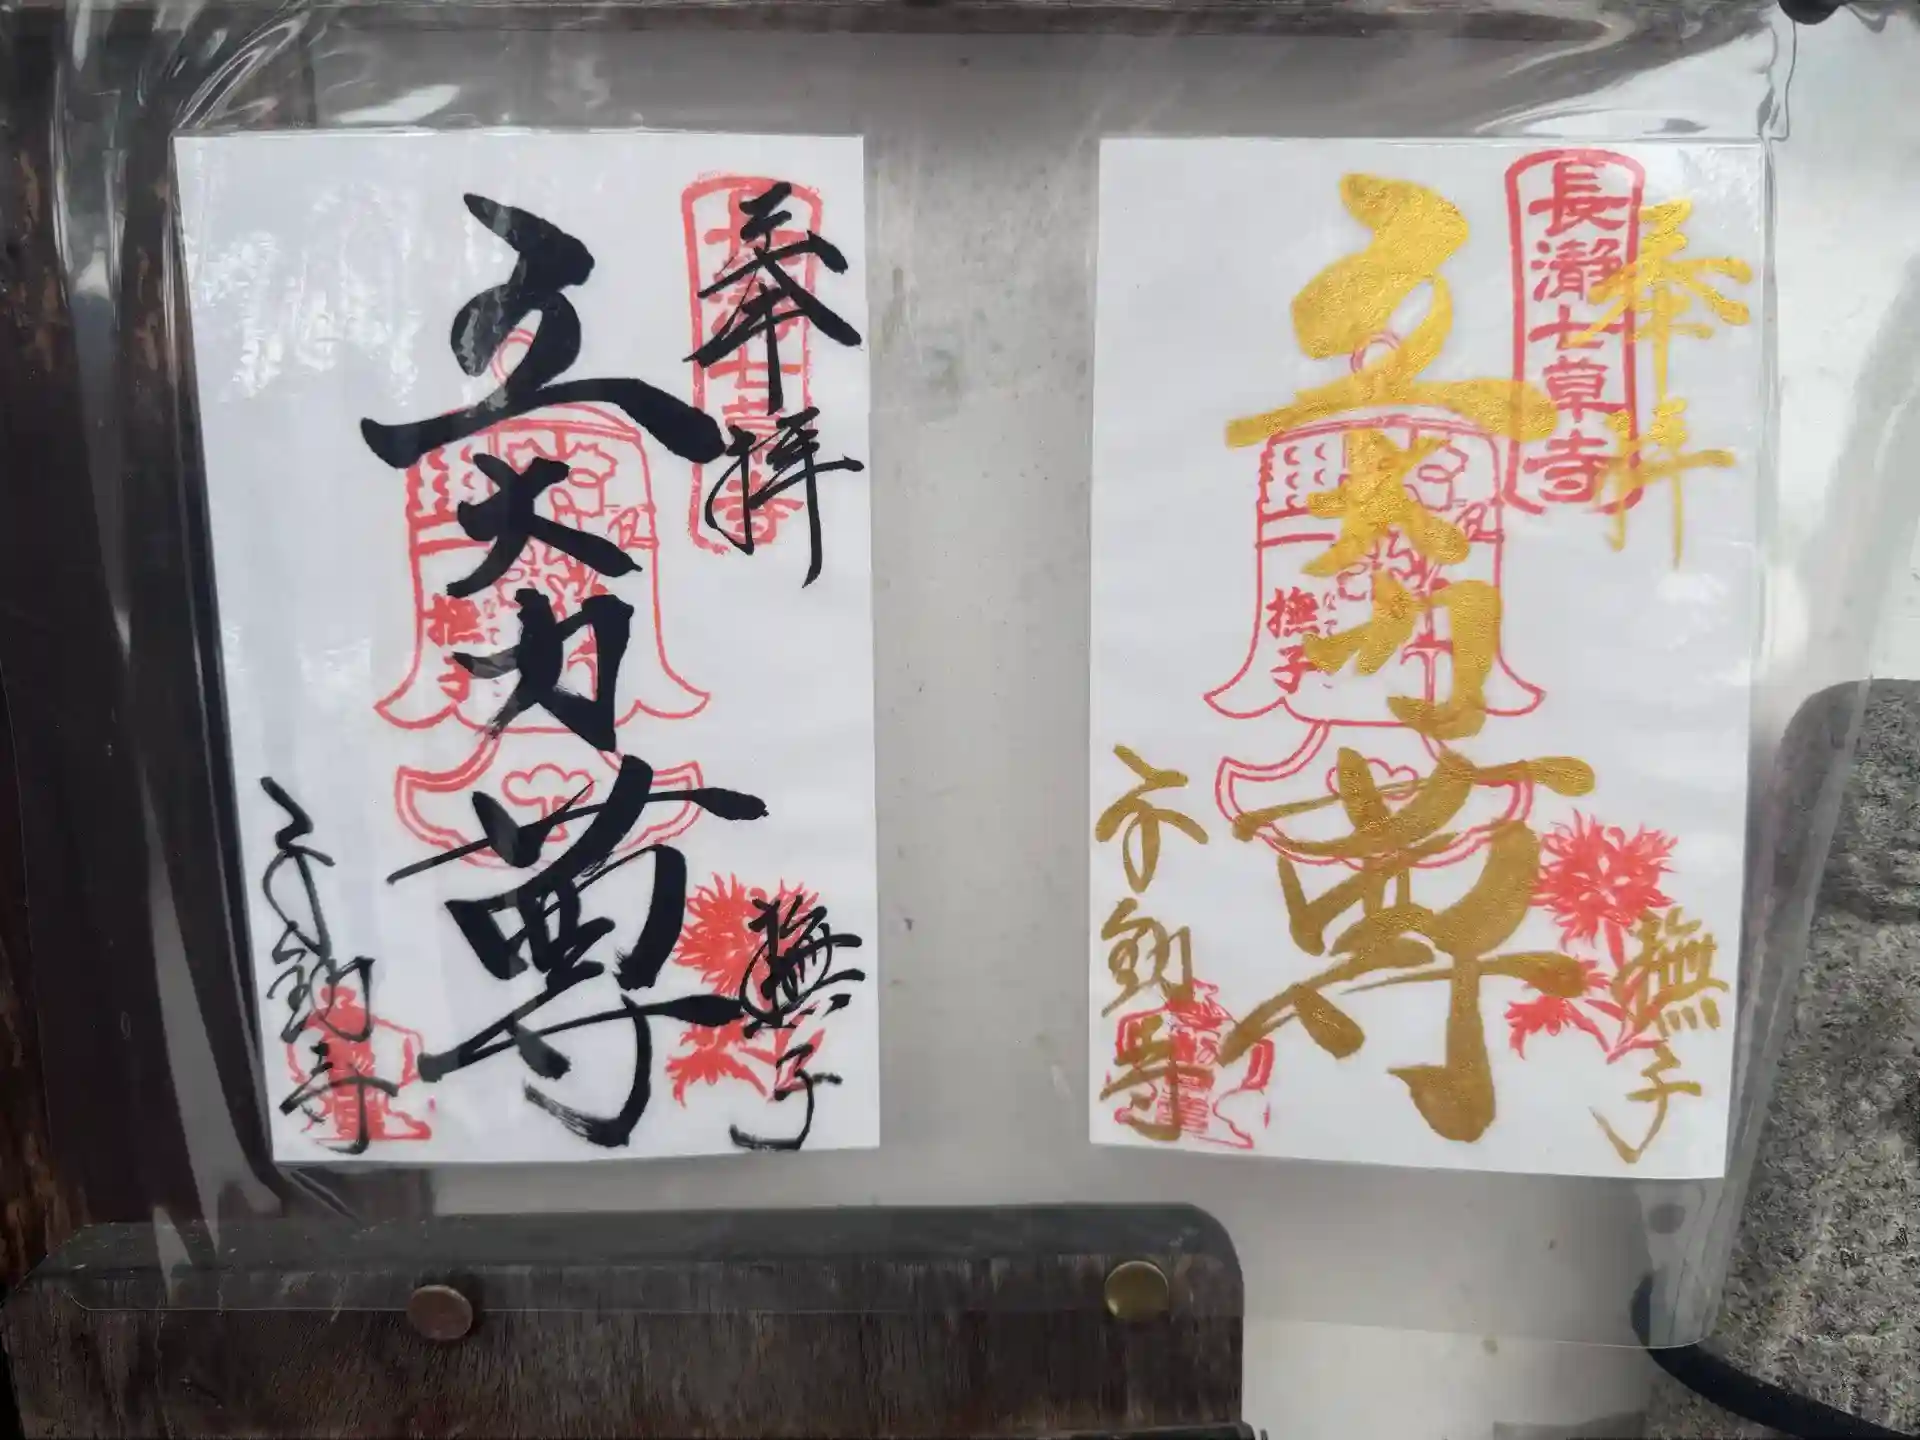 奉拝
長瀞七草寺
五大力尊
撫子
撫子
不動寺
奉拝
長瀞七草寺
五大力尊
撫子
撫子
不動寺